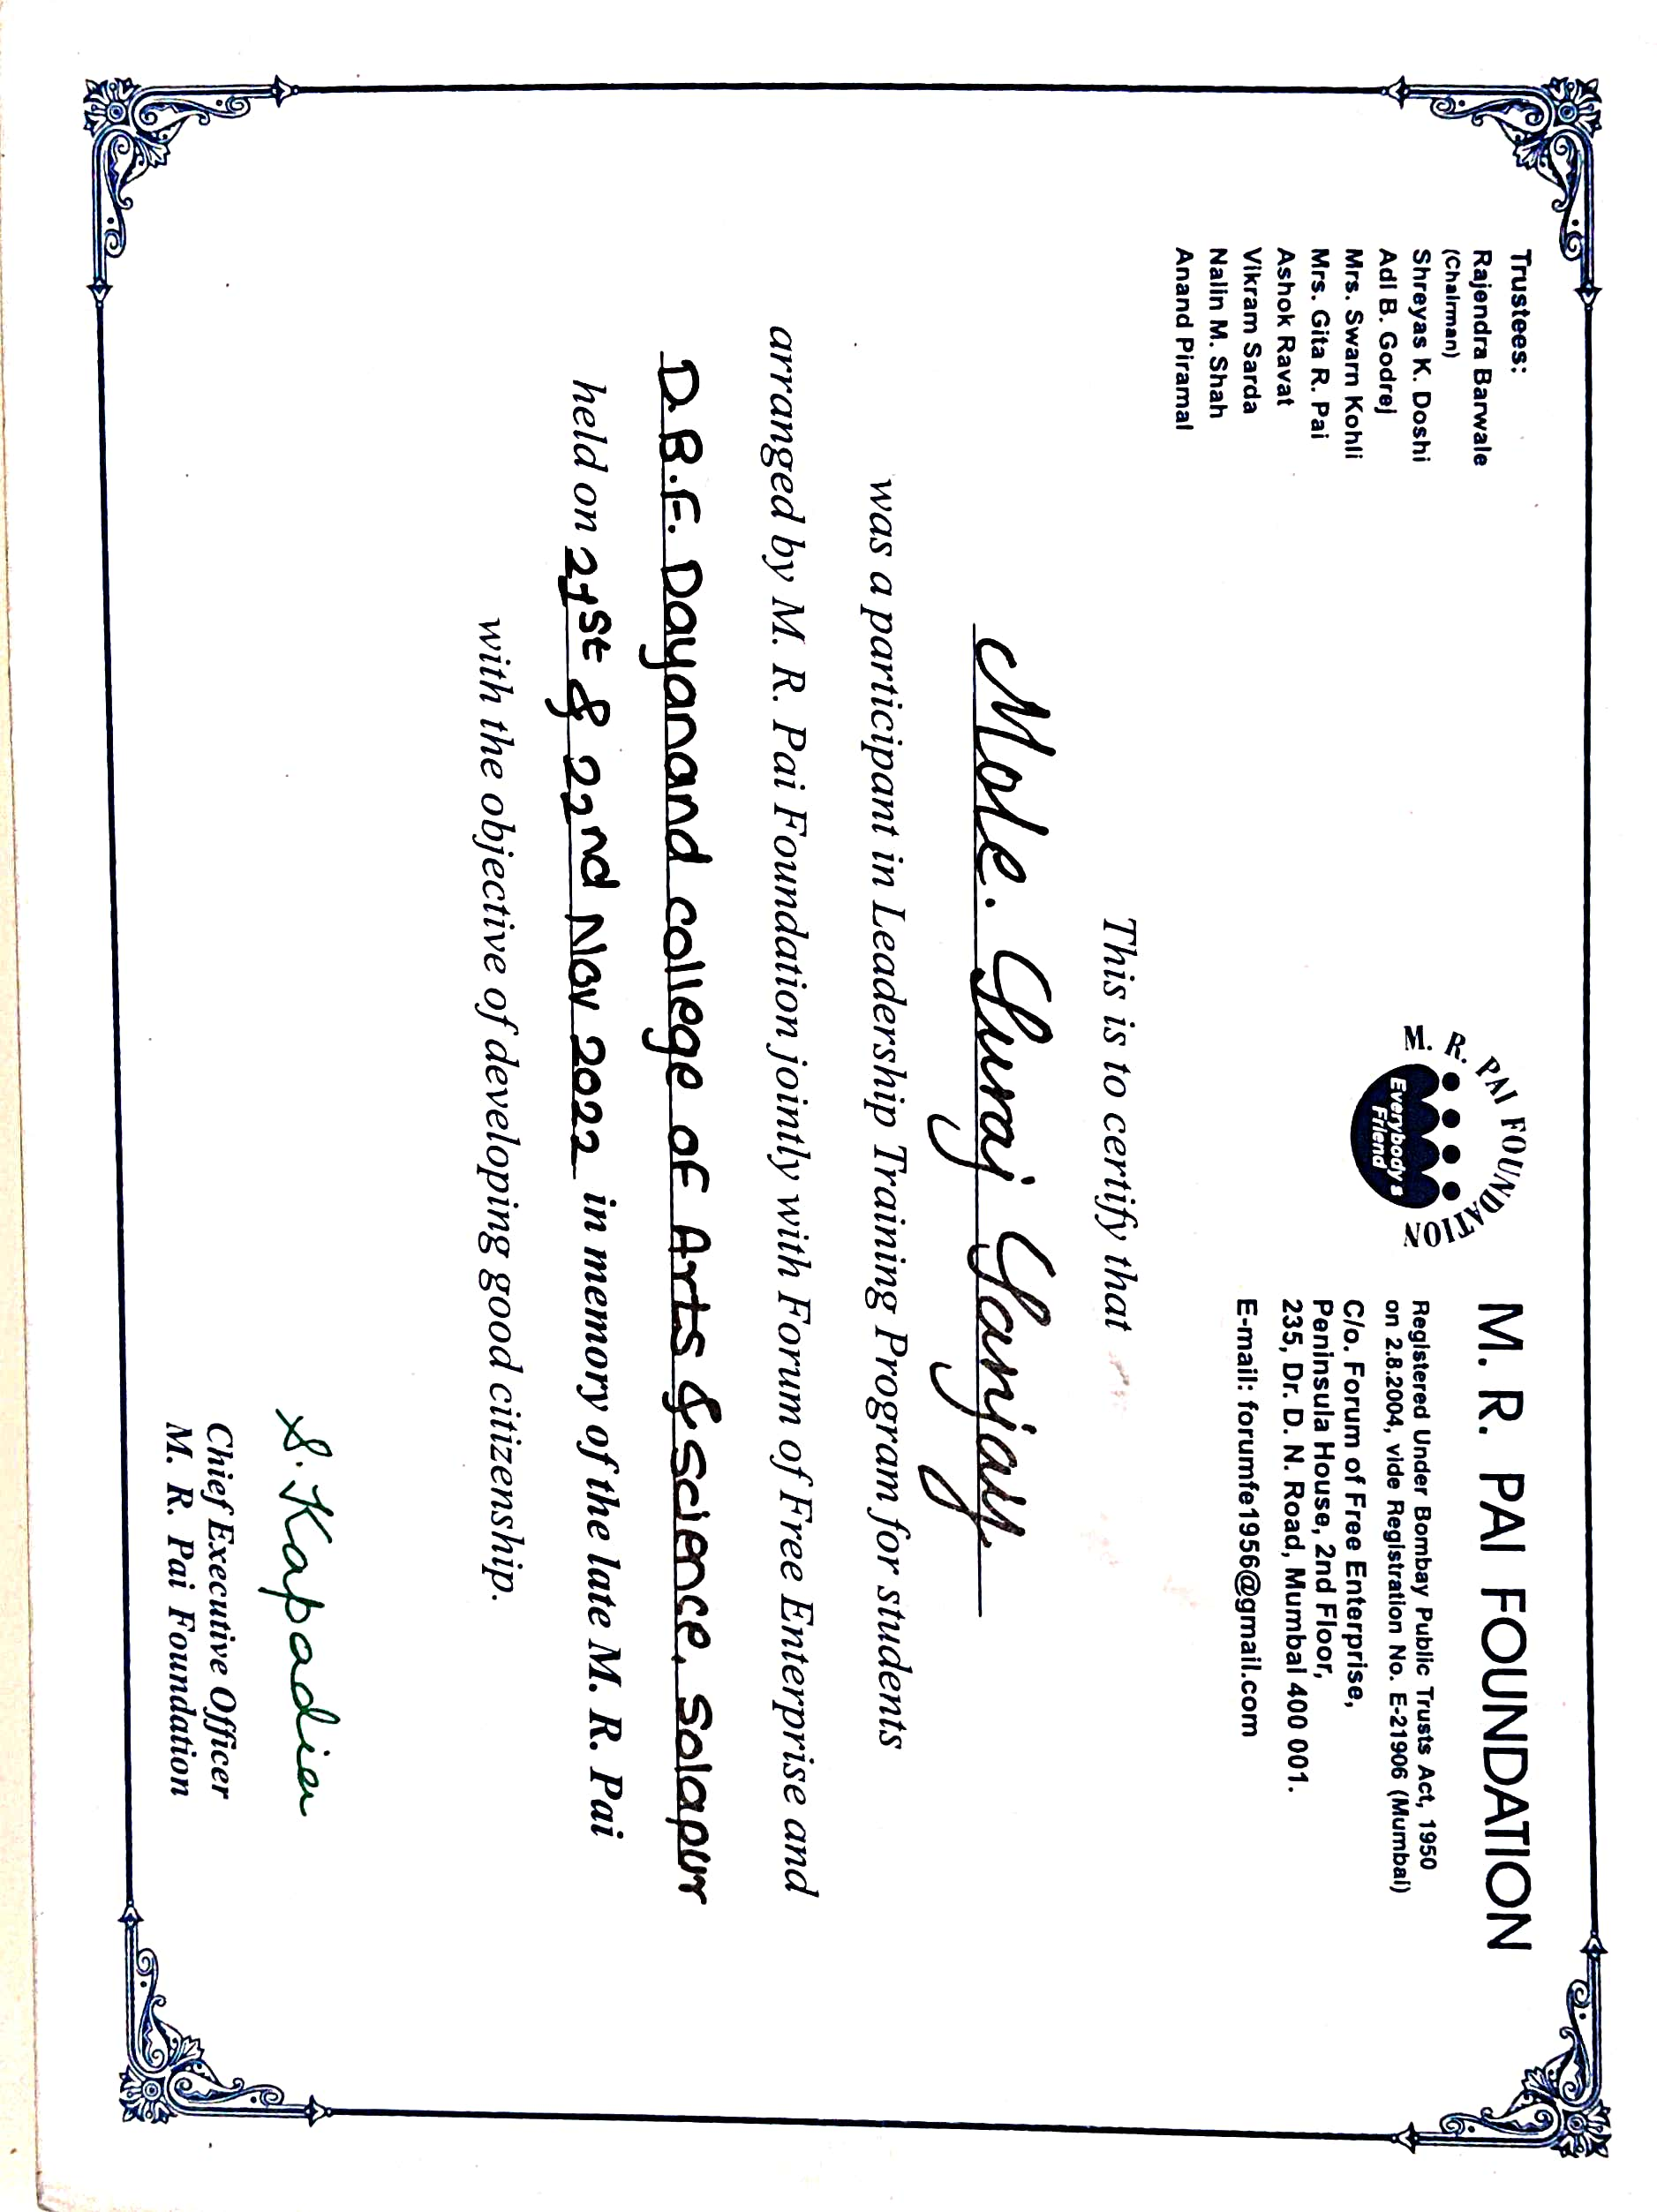 Trustees:
Rajendra Barwale
(Chairman)
Shreyas K. Doshi
Adi B. Godrej
Mrs. Swarn Kohli
Mrs. Gita R. Pai
Ashok Ravat
Vikram Sarda
Nalin M. Shah
Anand Piramal
M. R. PAI FOUNDATION
Everybody's
Friend
M. R. PAI FOUNDATION
Registered Under Bombay Public Trusts Act, 1950
on 2.8.2004, vide Registration No. E-21906 (Mumbai)
C/o. Forum of Free Enterprise,
Peninsula House, 2nd Floor,
235, Dr. D. N. Road, Mumbai 400 001.
E-mail: forumfe1956@gmail.com
This is to certify that
Mole. Suraj Sanjay
was a participant in Leadership Training Program for students
arranged by M. R. Pai Foundation jointly with Forum of Free Enterprise and
D.B.F. Dayanand college of Arts & science, solapur
held on 21st & 22nd Nov 2022 in memory of the late M. R. Pai
with the objective of developing good citizenship.
S. Kapadia
Chief Executive Officer
M. R. Pai Foundation